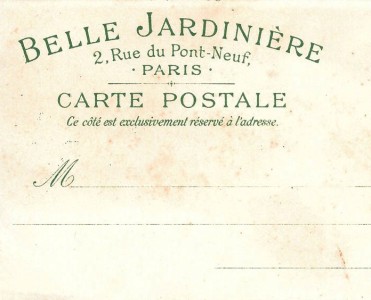 BELLE JARDINIÈRE
2, Rue du Pont-Neuf,
· PARIS ·
CARTE POSTALE
Ce côté est exclusivement réservé à l'adresse.
M